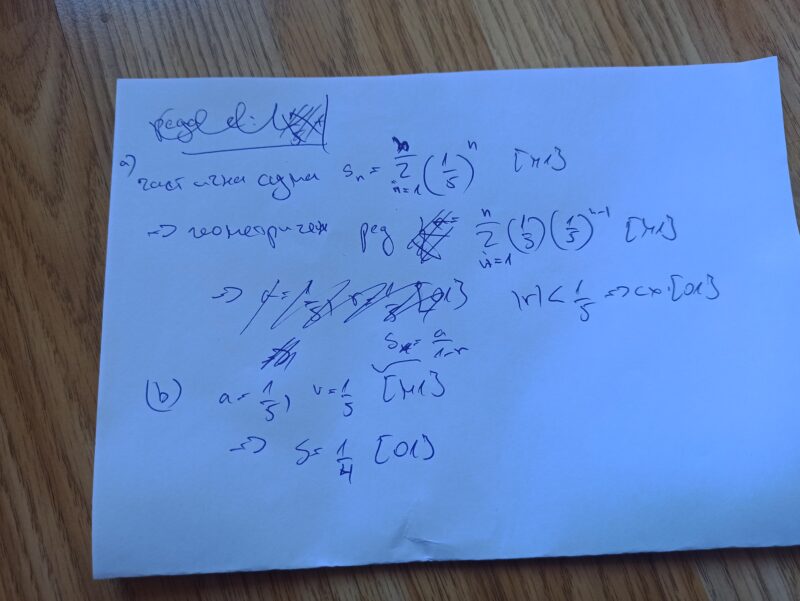 a) частична сума Sₙ = n Σ n=1 (1/5)ⁿ [M1]
=> геометричен ред n Σ n=1 (1/5)(1/5)ⁿ⁻¹ [M1]
|r| < 1/5 => сх. [O1]
S = a/1-r
(b) a = 1/5, r = 1/5 [M1]
=> S = 1/4 [O1]